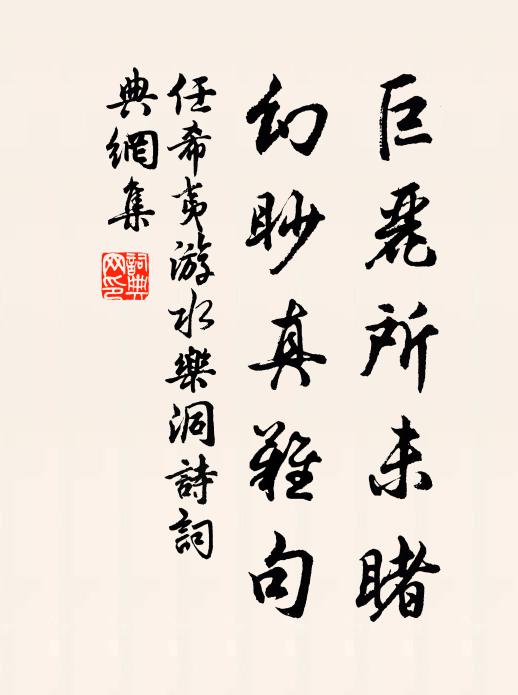 巨麗所未睹
幻眇真難句
任希夷游水樂洞詩詞
典網集
詞典网印